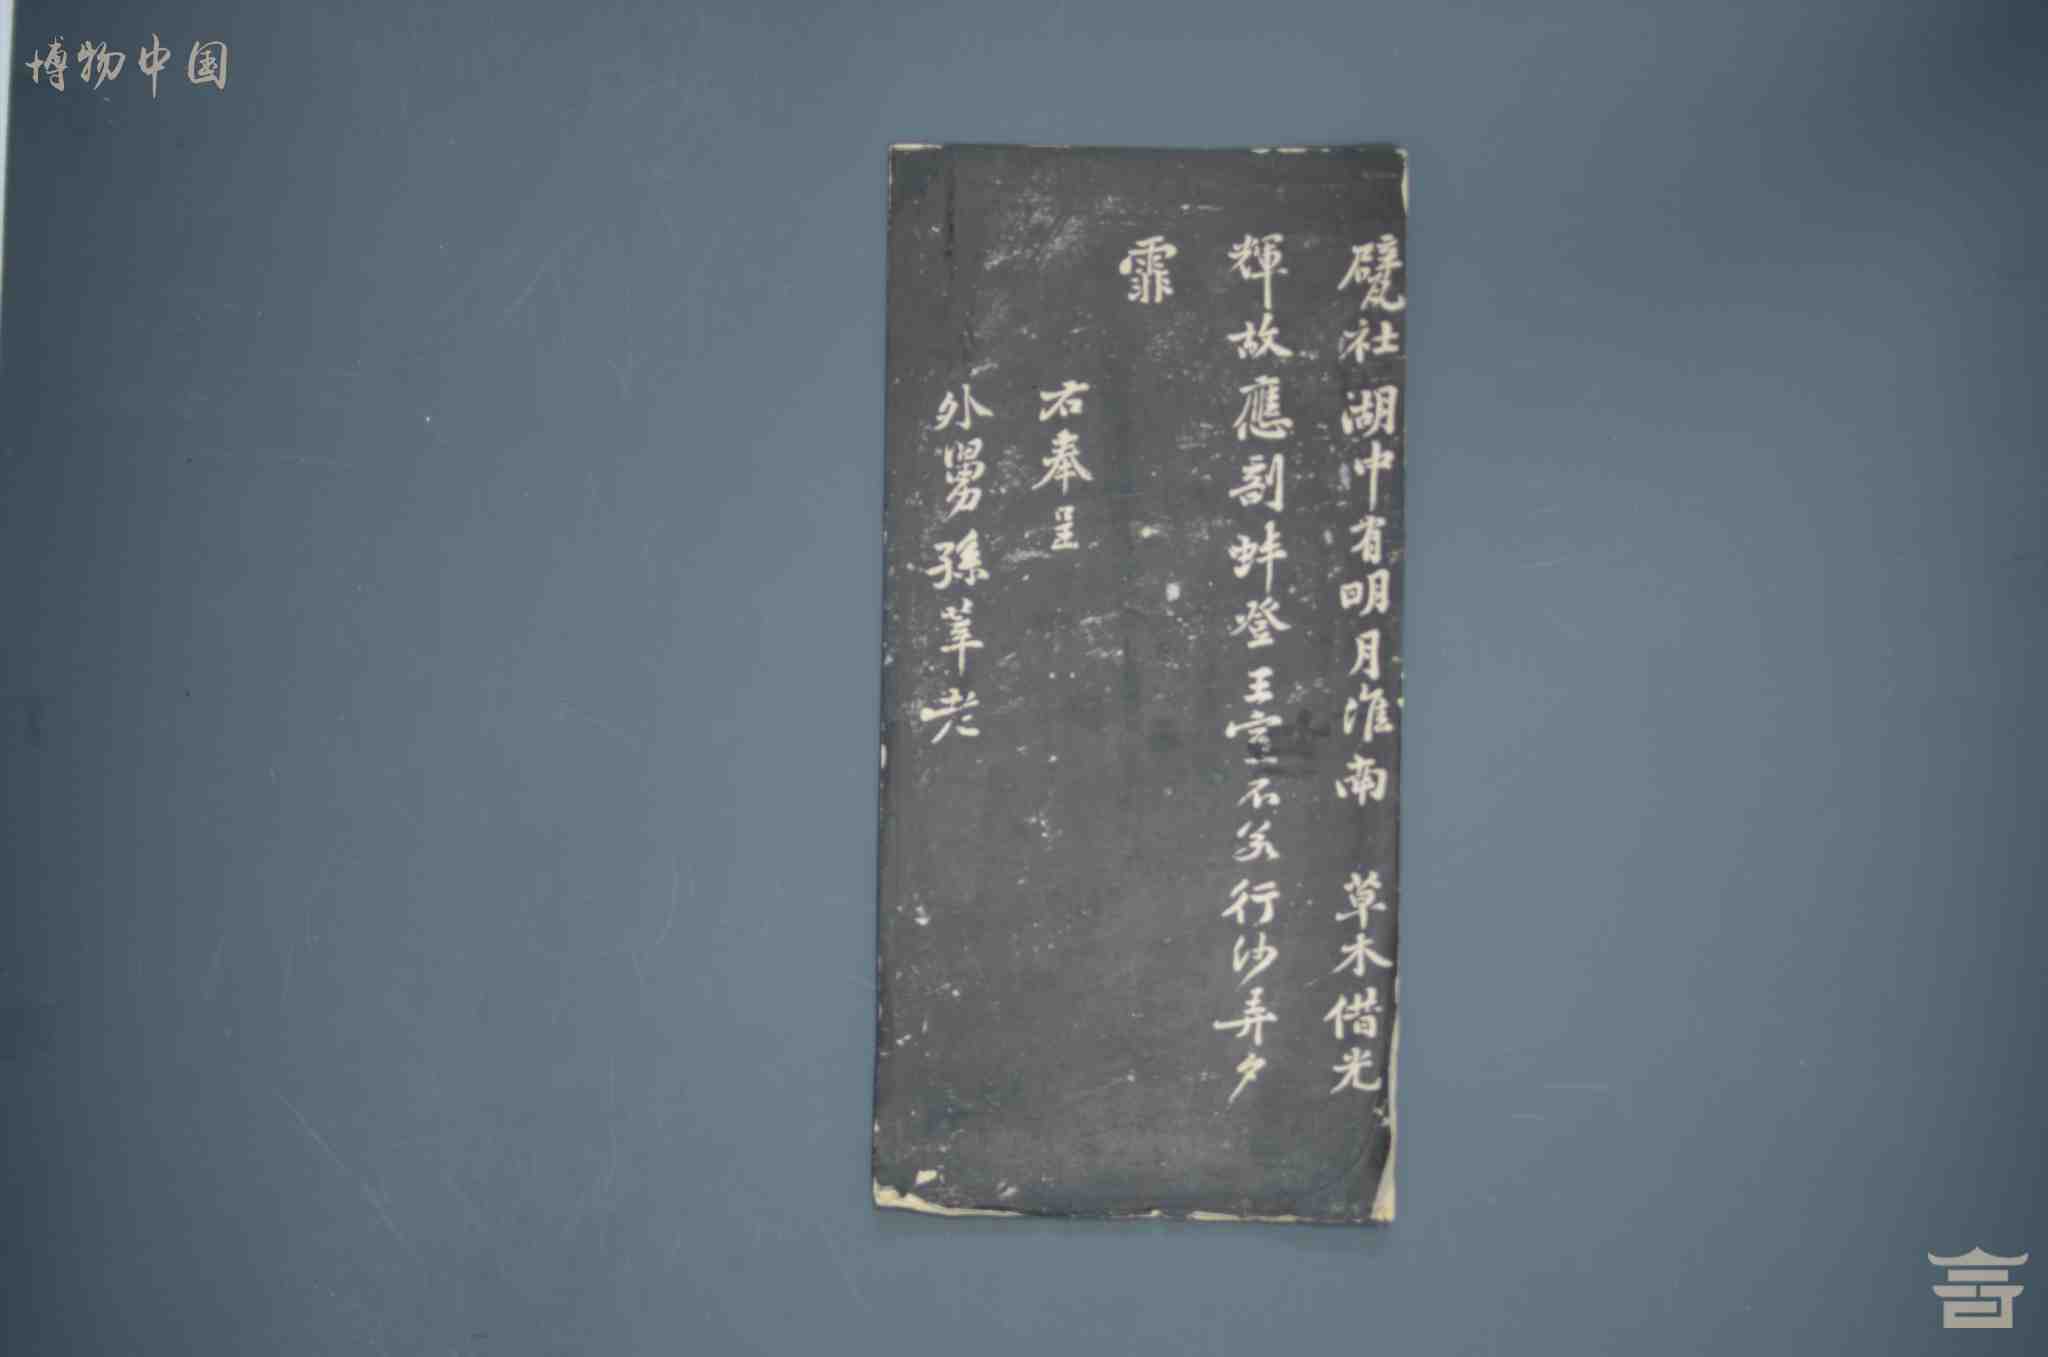 博物中国
甓社湖中有明月淮南草木借光
輝故應剖蚌登王室不若行沙弄夕
霏
右奉呈
外舅孫莘老